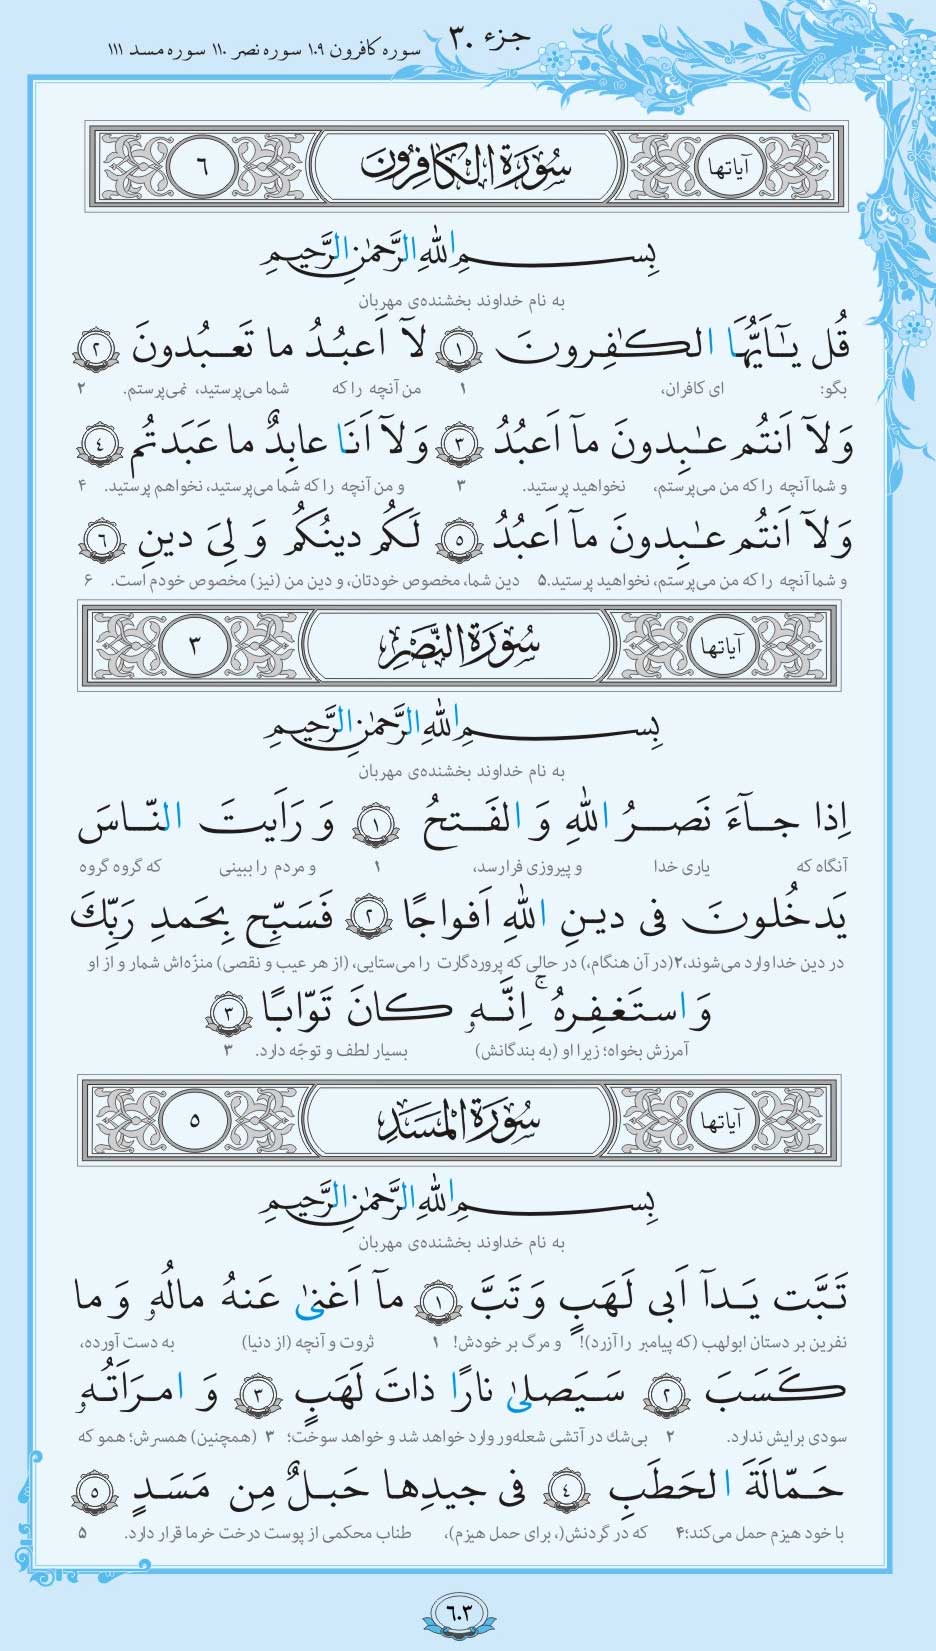 جزء ۳۰ سوره کافرون ۱۰۹ سوره نصر ۱۱۰ سوره مسد ۱۱۱
آیاتها سُورَةُ الکافِرُون ۶
بِسـمِ اللّٰهِ الرَّحمٰنِ الرَّحیمِ
به نام خداوند بخشنده‌ی مهربان
قُل یـٰٓاَیُّهَا الـکـٰفِـرونَ ﴿۱﴾ لآ اَعبُـدُ ما تَعـبُـدونَ ﴿۲﴾
بگو: ای کافران، ۱ من آنچه را که شما می‌پرستید، نمی‌پرستم. ۲
وَ لآ اَنتُم عـٰبِدونَ مآ اَعبُدُ ﴿۳﴾ وَ لآ اَنَا عابِدٌ ما عَبَدتُم ﴿۴﴾
و شما آنچه را که من می‌پرستم، نخواهید پرستید. ۳ و من آنچه را که شما می‌پرستید، نخواهم پرستید. ۴
وَ لآ اَنتُم عـٰبِدونَ مآ اَعبُدُ ﴿۵﴾ لَکُم دینُکُم وَ لِیَ دینِ ﴿۶﴾
و شما آنچه را که من می‌پرستم، نخواهید پرستید.۵ دین شما، مخصوص خودتان، و دین من (نیز) مخصوص خودم است. ۶
آیاتها سُورَةُ النَّصْرِ ۳
بِسـمِ اللّٰهِ الرَّحمٰنِ الرَّحیمِ
به نام خداوند بخشنده‌ی مهربان
اِذا جـآءَ نَصـرُ اللّٰهِ وَ الفَـتحُ ﴿۱﴾ وَ رَاَیتَ النّـاسَ
آنگاه که یاری خدا و پیروزی فرا رسد، ۱ و مردم را ببینی که گروه گروه
یَدخُلونَ فی دیـنِ اللّٰهِ اَفواجًا ﴿۲﴾ فَسَبِّح بِحَمدِ رَبِّكَ
در دین خدا وارد می‌شوند،۲ (در آن هنگام،) در حالی که پروردگارت را می‌ستایی، (از هر عیب و نقصی) منزّه‌اش شمار و از او
وَ استَغـفِـرهُ ۚ اِنَّـهٖ کـانَ تَوّابًا ﴿۳﴾
آمرزش بخواه؛ زیرا او (به بندگانش) بسیار لطف و توجّه دارد. ۳
آیاتها سُورَةُ المَسَدِ ۵
بِسـمِ اللّٰهِ الرَّحمٰنِ الرَّحیمِ
به نام خداوند بخشنده‌ی مهربان
تَبَّت یَـدآ اَبی لَهَبٍ وَ تَبَّ ﴿۱﴾ مآ اَغنیٰ عَنهُ مالُهٗ وَ ما
نفرین بر دستان ابولهب (که پیامبر را آزرد)! و مرگ بر خودش! ۱ ثروت و آنچه (از دنیا) به دست آورده،
کَـسَبَ ﴿۲﴾ سَـیَصلیٰ نارًا ذاتَ لَهَبٍ ﴿۳﴾ وَ امـرَاَتُهٗ
سودی برایش ندارد. ۲ بی‌شك در آتشی شعله‌ور وارد خواهد شد و خواهد سوخت؛ ۳ (همچنین) همسرش؛ همو که
حَـمّالَةَ الحَطَبِ ﴿۴﴾ فی جیدِها حَبـلٌ مِن مَسَدٍ ﴿۵﴾
با خود هیزم حمل می‌کند؛۴ که در گردنش(، برای حمل هیزم)، طناب محکمی از پوست درخت خرما قرار دارد. ۵
۶۰۳